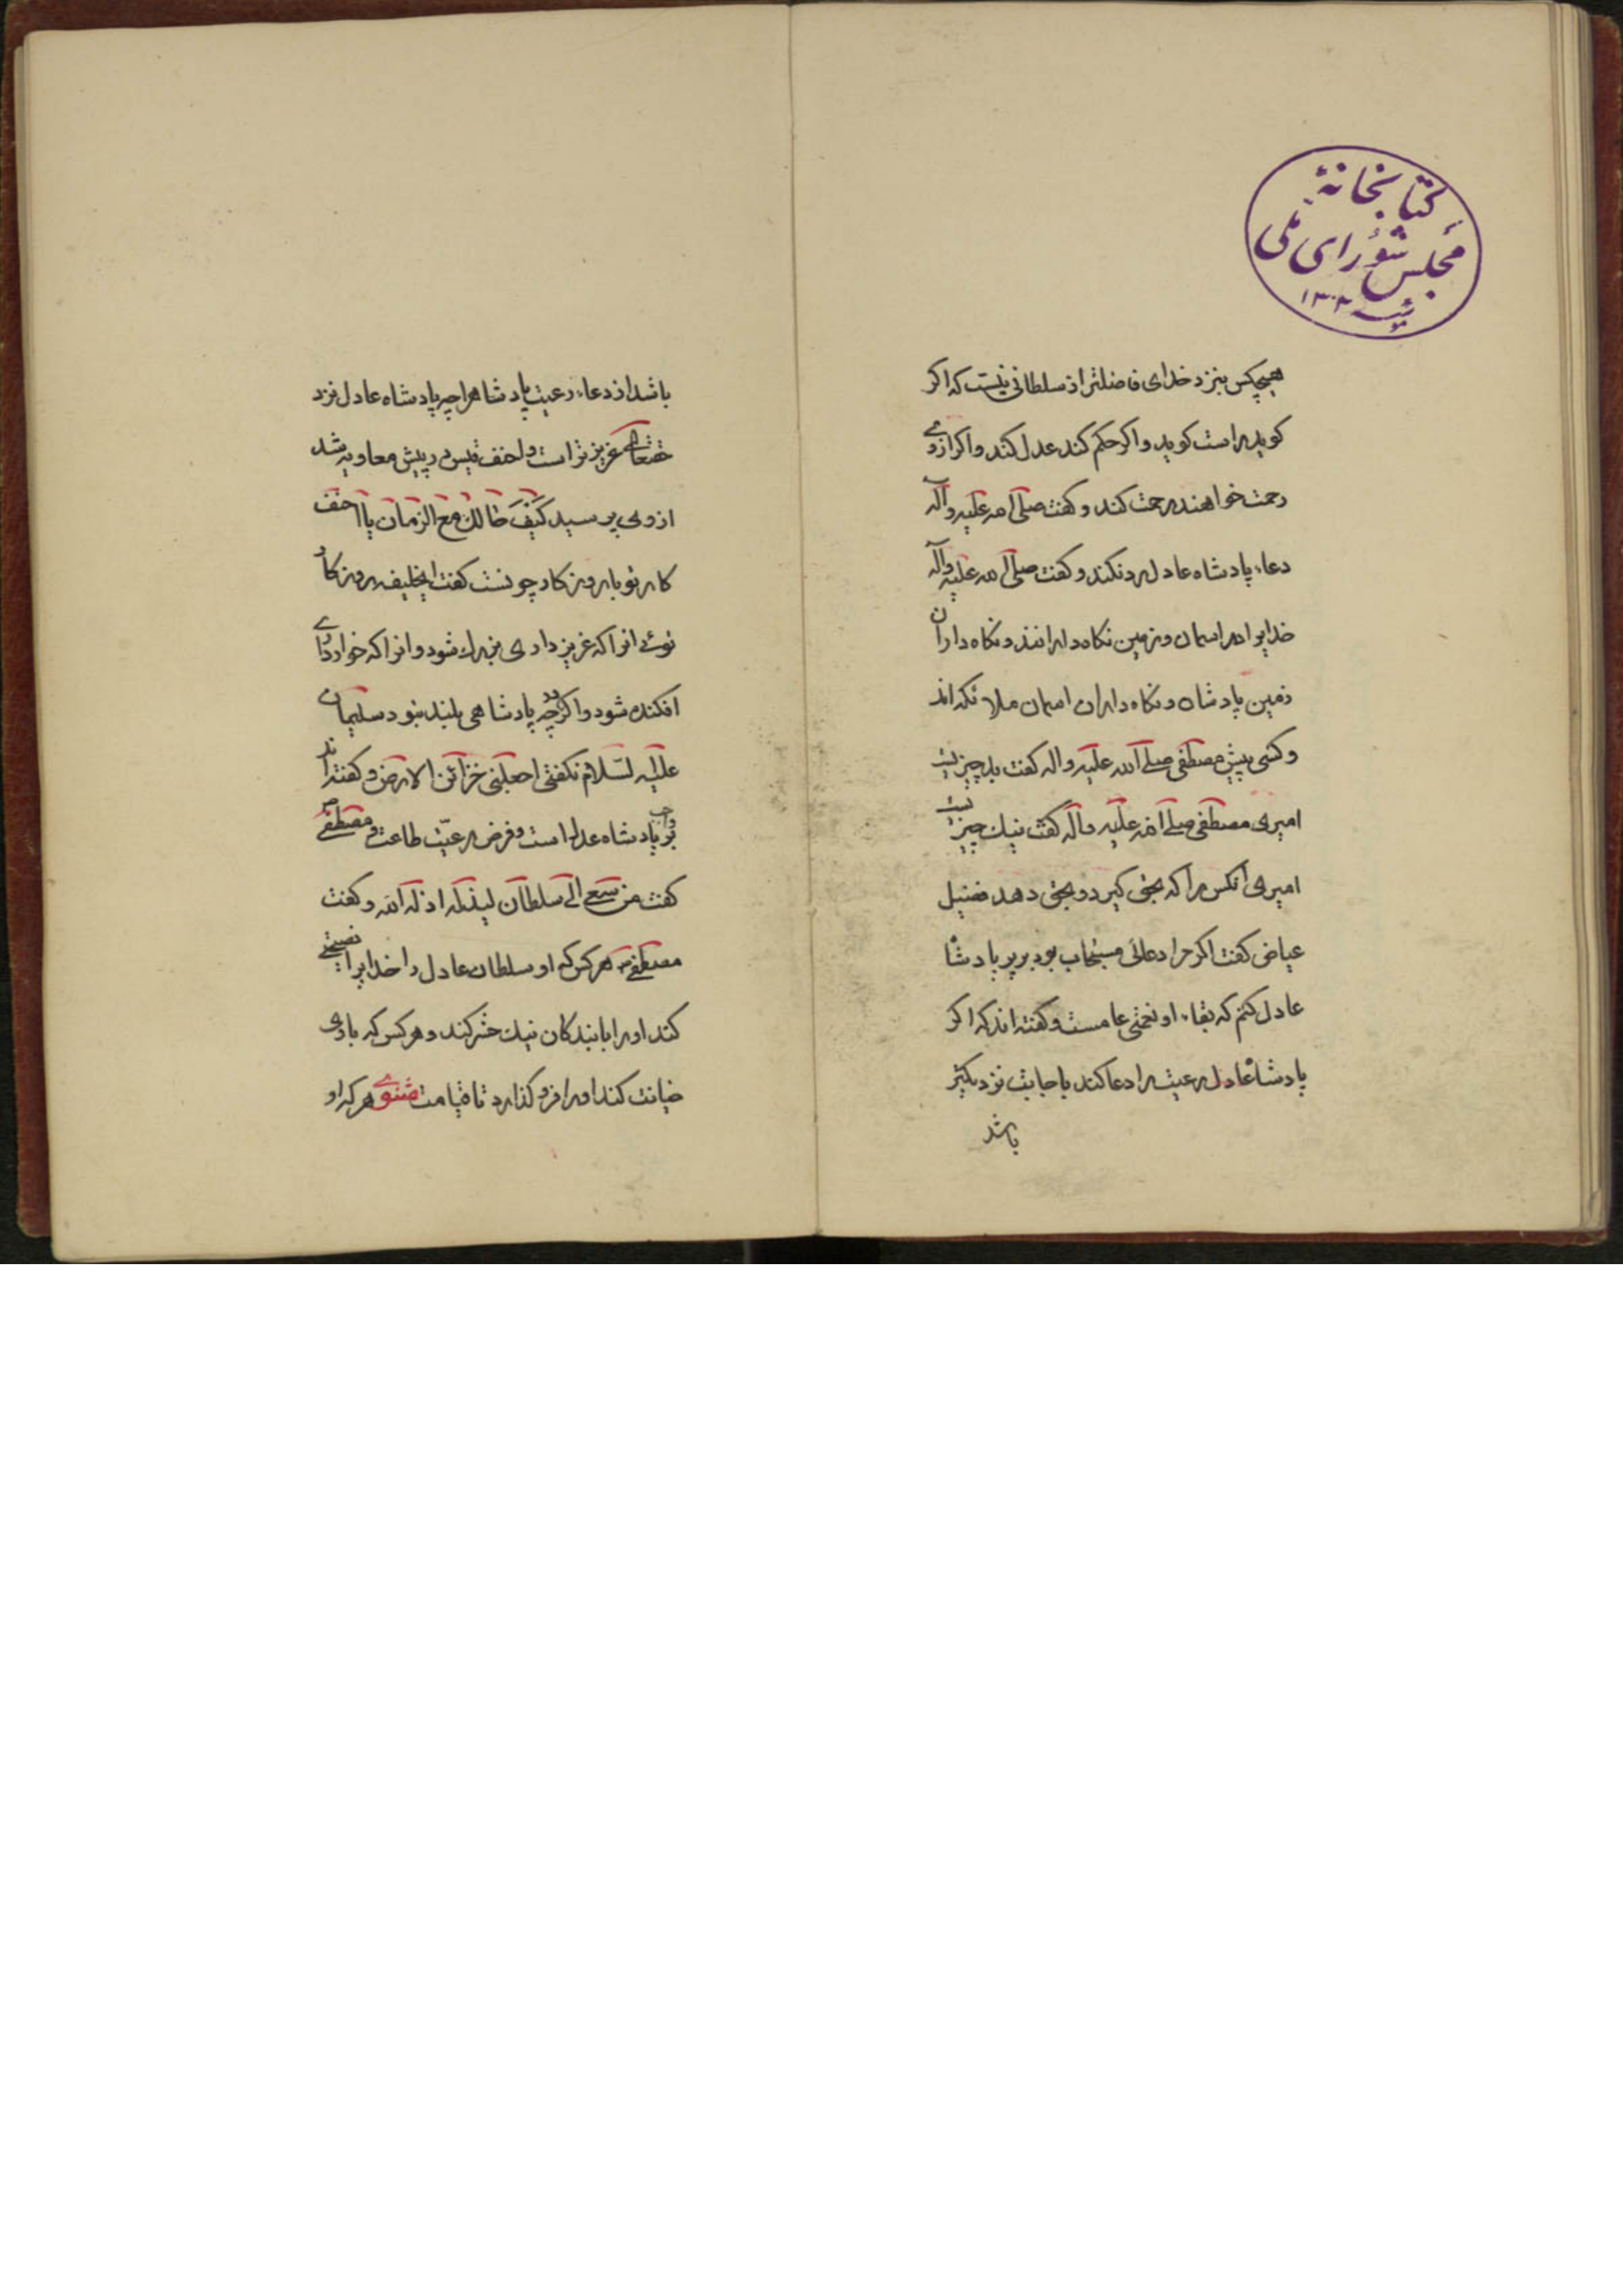 کتابخانهٔ
مجلس شورای ملی
۱۳۰۳
هیچکس بنزد خدای فاضلتر از سلطانی نیست که اکر
کوید راست کوید و اکر حکم کند عدل کند و اکر ازوی
رحمت خواهند رحمت کند و کفت صلی الله علیه وآله
دعاء پادشاه عادل رد نکند و کفت صلی الله علیه وآله
خدایرا در اسمان و زمین نکاه دارانند و نکاه داران
زمین پادشاه و نکاه داران اسمان ملائکه اند
و کسی پیش مصطفی صلی الله علیه واله کفت بد چیزیست
امیری مصطفی صلی الله علیه وآله کفت نیک چیزیست
امیری آنکس را که بحق کیرد و بحق دهد فضیل
عیاض کفت اکر مرا دعائی مستجاب بود بر پادشا
عادل کنم که بقاء او نعمتی عامست و کفته اند که اکر
پادشاه عادل رعیت را دعا کند باجابت نزدیکتر
باشد
باشد از دعاء رعیت پادشاهرا چه پادشاه عادل نزد
حقتعالی عزیزتر است احنف قیس در پیش معاویه شد
ازوی پرسید کیف حالک مع الزمان یا احنف
کار تو با روزکار چونست کفت ایخلیفه روزکار
توئی انرا که عزیز داری بزرک شود و انرا که خوار داری
افکنده شود و اکر چه پادشاهی بلند نبود سلیمان
علیه السلام نکفتی اجعلنی خزائن الارض و کفته اند
واجب بر پادشاه عدل است و فرض رعیت طاعت و مصطفی
کفت من سعی الی سلطان لیذله اذله الله و کفت
مصطفی ص هر کس که او سلطان عادل را خدایرا نصیحتی
کند او را با بندکان نیک حشر کند و هر کس که با وی
خیانت کند او را فرو کذارد تا قیامت مثنوی هر که او